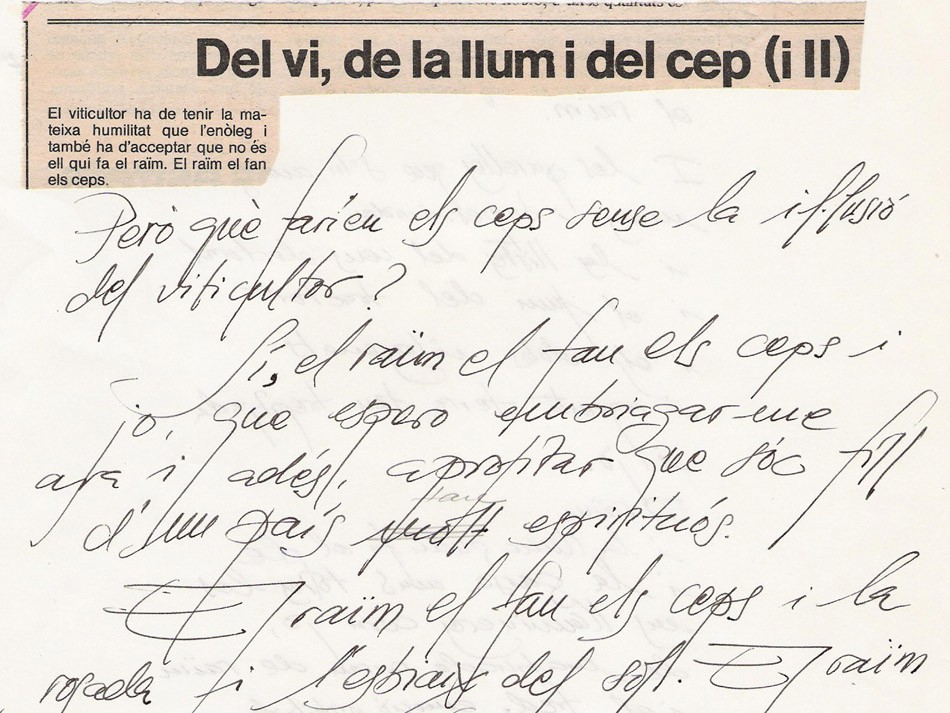 Del vi, de la llum i del cep (i II)
El viticultor ha de tenir la ma-
teixa humilitat que l'enòleg i
també ha d'acceptar que no és
ell qui fa el raïm. El raïm el fan
els ceps.
Però què farien els ceps sense la il·lusió
del viticultor?
Sí, el raïm el fan els ceps i
jo, que espero embriagar-me
ara i adés, aprofitar que sóc fill
d'un país tan espirituós.
El raïm el fan els ceps i la
rosada i l'estiu del sol. El raïm